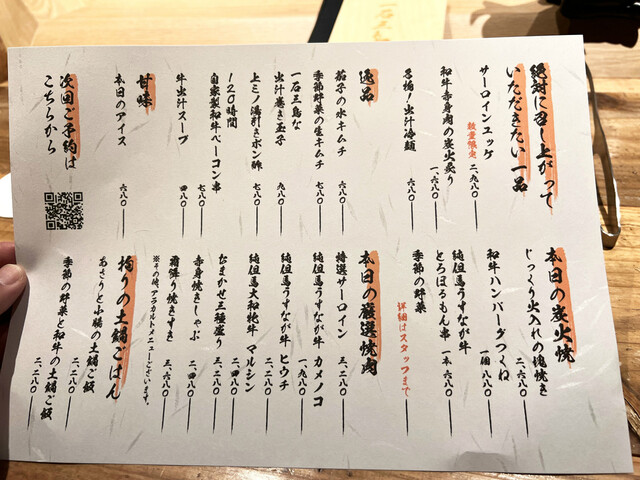 絶対に召し上がって
いただきたい一品
サーロインユッケ
数量限定 二、九八〇
和牛赤身肉の炭火炙り
一、六八〇
名物！出汁冷麺
六八〇
逸品
茄子の水キムチ
六八〇
季節野菜の生キムチ
七八〇
一石三鳥な
出汁巻き玉子
九八〇
上ミノ湯引きポン酢
七八〇
120時間
自家製和牛ベーコン串
七八〇
牛出汁スープ
四八〇
甘味
本日のアイス
六八〇
次回ご予約は
こちらから
本日の炭火焼
じっくり火入れの塊焼き
二、六八〇
和牛ハンバーグつくね
一個 八八〇
純但馬うすなが牛
とろほるもん串 一本 六八〇
季節の野菜
詳細はスタッフまで
本日の厳選焼肉
特選サーロイン
三、二八〇
純但馬うすなが牛 カメノコ
一、九八〇
純但馬うすなが牛 ヒウチ
二、二八〇
純但馬大和牝牛 マルシン
二、二八〇
おまかせ三種盛り
二、四八〇
赤身焼きしゃぶ
二、四八〇
霜降り焼きすき
三、二八〇
※その他、アラカルトメニューございます。
拘りの土鍋ごはん
あさりと小腸の土鍋ご飯
二、二八〇
季節の野菜と和牛の土鍋ご飯
二、二八〇